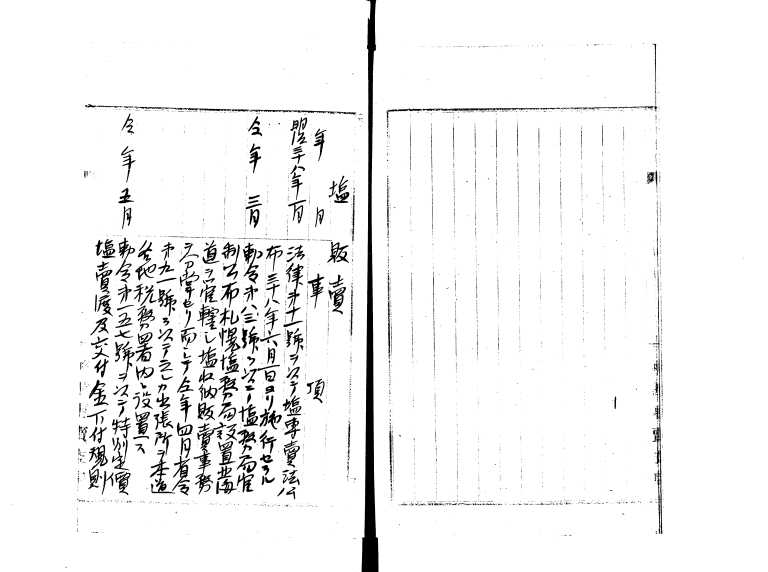 塩販賣
年月 事項
明治三十八年一月 法律第十一號ヲ以テ塩専賣法公
布三十八年六月一日ヨリ施行セラル
仝年三月 勅令第八三號ヲ以テ塩務局官
制公布札幌塩務局設置北海
道ヲ管轄シ塩収納販賣事務
ヲ 而シテ仝年四月省令
第九一號ヲ以テ之レカ出張所ヲ本道
各地税務署内ニ設置ス
仝年五月 勅令第一五七號ヲ以テ特別定價
塩賣渡及交付金下付規則